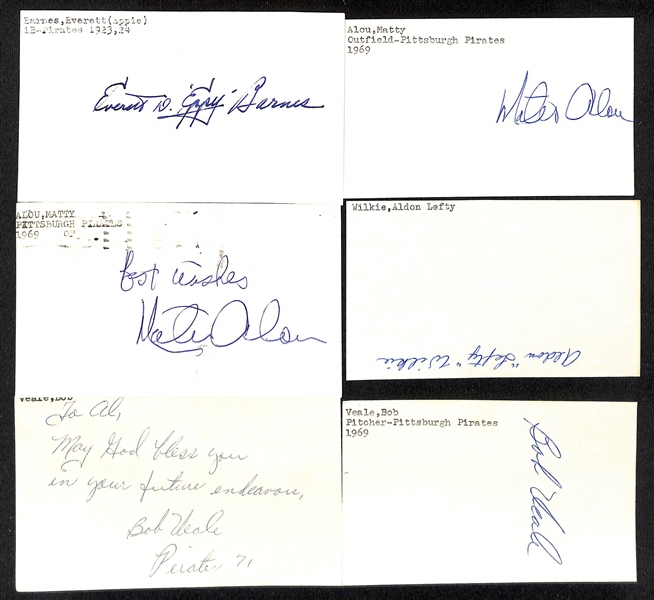 Barnes,Everett(Epple)
1B-Pirates 1923,24
Everett D. "Eppy" Barnes
Alou,Matty
Outfield-Pittsburgh Pirates
1969
Mateo Alou
ALOU,MATTY
PITTSBURGH PIRATES
1969 OF
Best wishes
Mateo Alou
Wilkie,Aldon Lefty
Aldon "Lefty" Wilkie
Veale,Bob
To Al,
May God bless you
in your future endeavors,
Bob Veale
Pirates 71
Veale,Bob
Pitcher-Pittsburgh Pirates
1969
Bob Veale